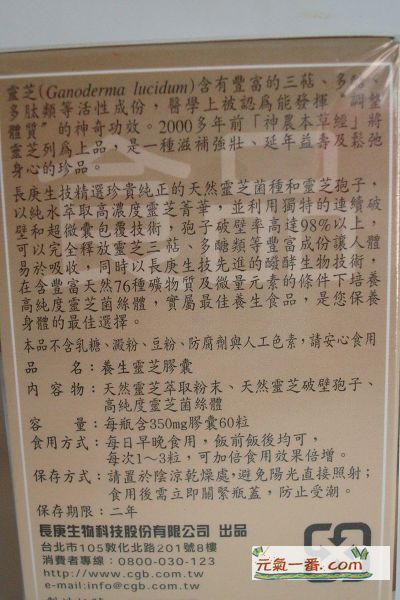 靈芝(Ganoderma lucidum)含有豐富的三萜、多醣、
多肽類等活性成份，醫學上被認為能發揮"調整
體質"的神奇功效。2000多年前「神農本草經」將
靈芝列為上品，是一種滋補強壯、延年益壽及鬆弛
身心的珍品。
長庚生技精選珍貴純正的天然靈芝菌種和靈芝孢子，
以純水萃取高濃度靈芝菁華，並利用獨特的連續破
壁和超微囊包覆技術，孢子破壁率高達98%以上，
可以完全釋放靈芝三萜、多醣類等豐富成份讓人體
易於吸收，同時以長庚生技先進的醱酵生物技術，
在含豐富天然76種礦物質及微量元素的條件下培養
高純度靈芝菌絲體，實屬最佳養生食品，是您保養
身體的最佳選擇。
本品不含乳糖、澱粉、豆粉、防腐劑與人工色素，請安心食用
品 名：養生靈芝膠囊
內 容 物：天然靈芝萃取粉末、天然靈芝破壁孢子、
高純度靈芝菌絲體
容 量：每瓶含350mg膠囊60粒
食用方式：每日早晚食用，飯前飯後均可，
每次1~3粒，可加倍食用效果倍增。
保存方式：請置於陰涼乾燥處，避免陽光直接照射；
食用後需立即關緊瓶蓋，防止受潮。
保存期限：二年
長庚生物科技股份有限公司 出品
台北市105敦化北路201號8樓
消費者專線：0800-030-123
http://www.cgb.com.tw
e-mail:info@cgb.com.tw
元氣一番.com